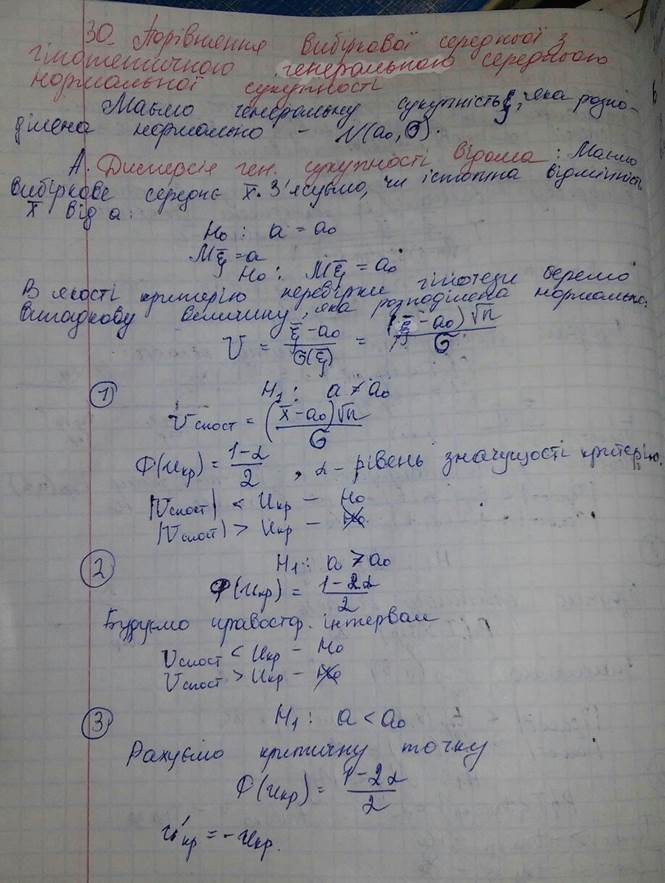 30. Порівняння вибіркової середньої з
гіпотетичною генеральною середньою
нормальної сукупності
Маємо генеральну сукупність ξ, яка розпо-
ділена нормально – N(a₀, σ).
А. Дисперсія ген. сукупності відома: Маємо
вибіркове середнє x̄. З'ясуємо, чи істотна відмінність
x̄ від a:
H₀ : a = a₀
Mξ̄ = a
H₀: Mξ̄ = a₀
В якості критерію перевірки гіпотези беремо
випадкову величину, яка розподілена нормально:
U = (ξ̄ - a₀)/σ(ξ̄) = (ξ̄ - a₀)√n/σ
① H₁: a ≠ a₀
Uспост = (x̄ - a₀)√n/σ
Φ(uкр) = (1-α)/2 , α - рівень значущості критерію.
|Uспост| < uкр – H₀
|Uспост| > uкр – H₀
② H₁: a > a₀
Φ(uкр) = (1-2α)/2
Будуємо правостор. інтервал
Uспост < uкр – H₀
Uспост > uкр – H₀
③ H₁: a < a₀
Рахуємо критичну точку
Φ(uкр) = (1-2α)/2
u'кр = -uкр.